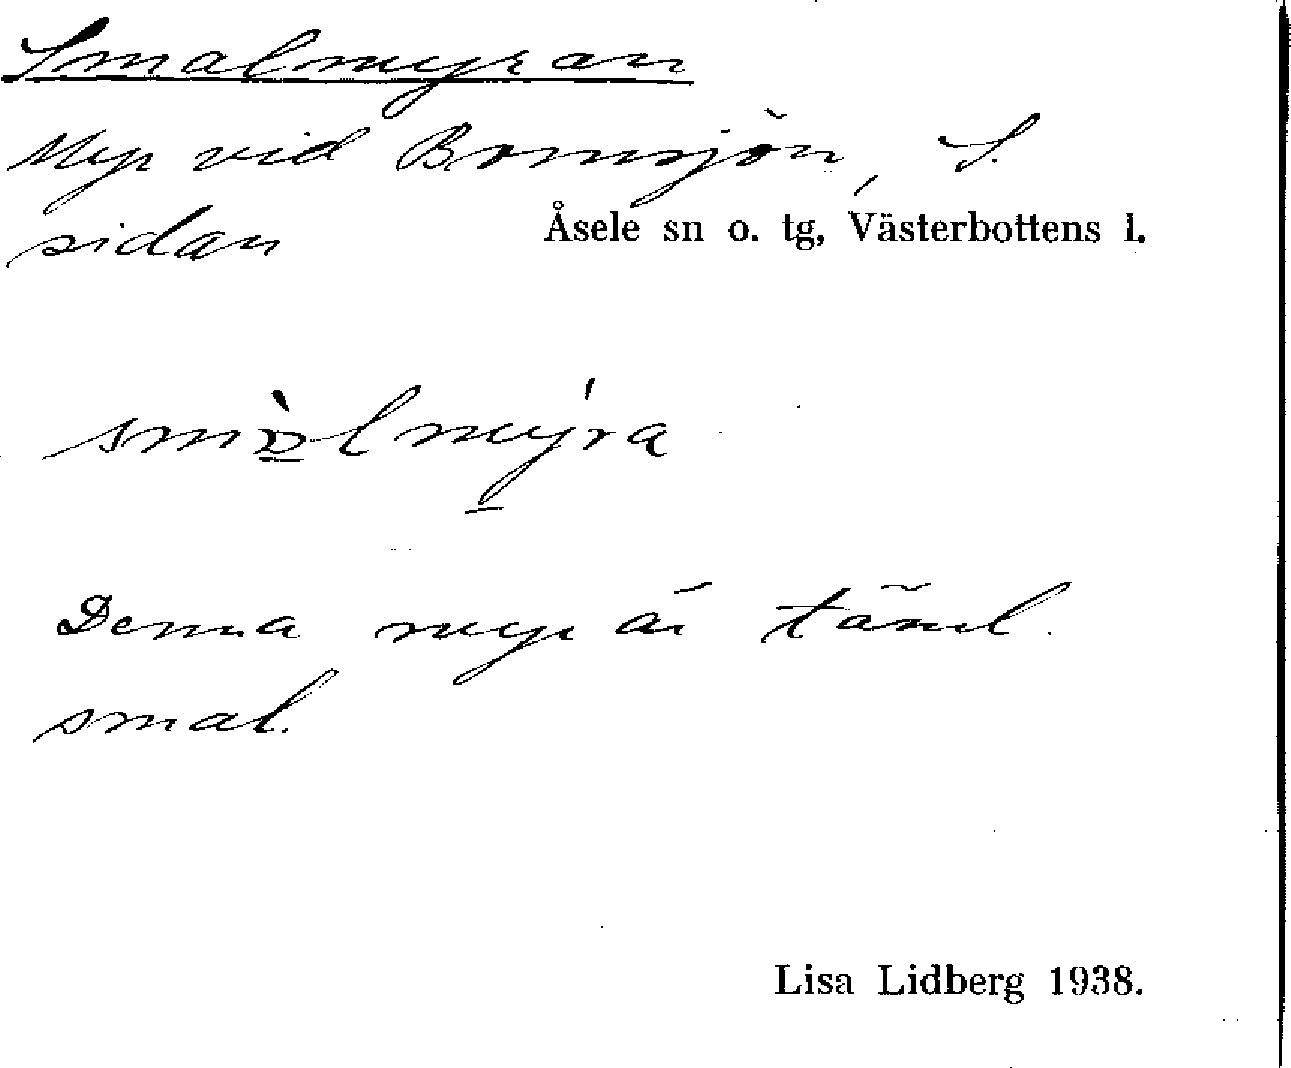 Smalmyran
Myr vid Bomsjön, S.
sidan
Åsele sn o. tg, Västerbottens l.
Denna myr är täml.
smal.
Lisa Lidberg 1938.